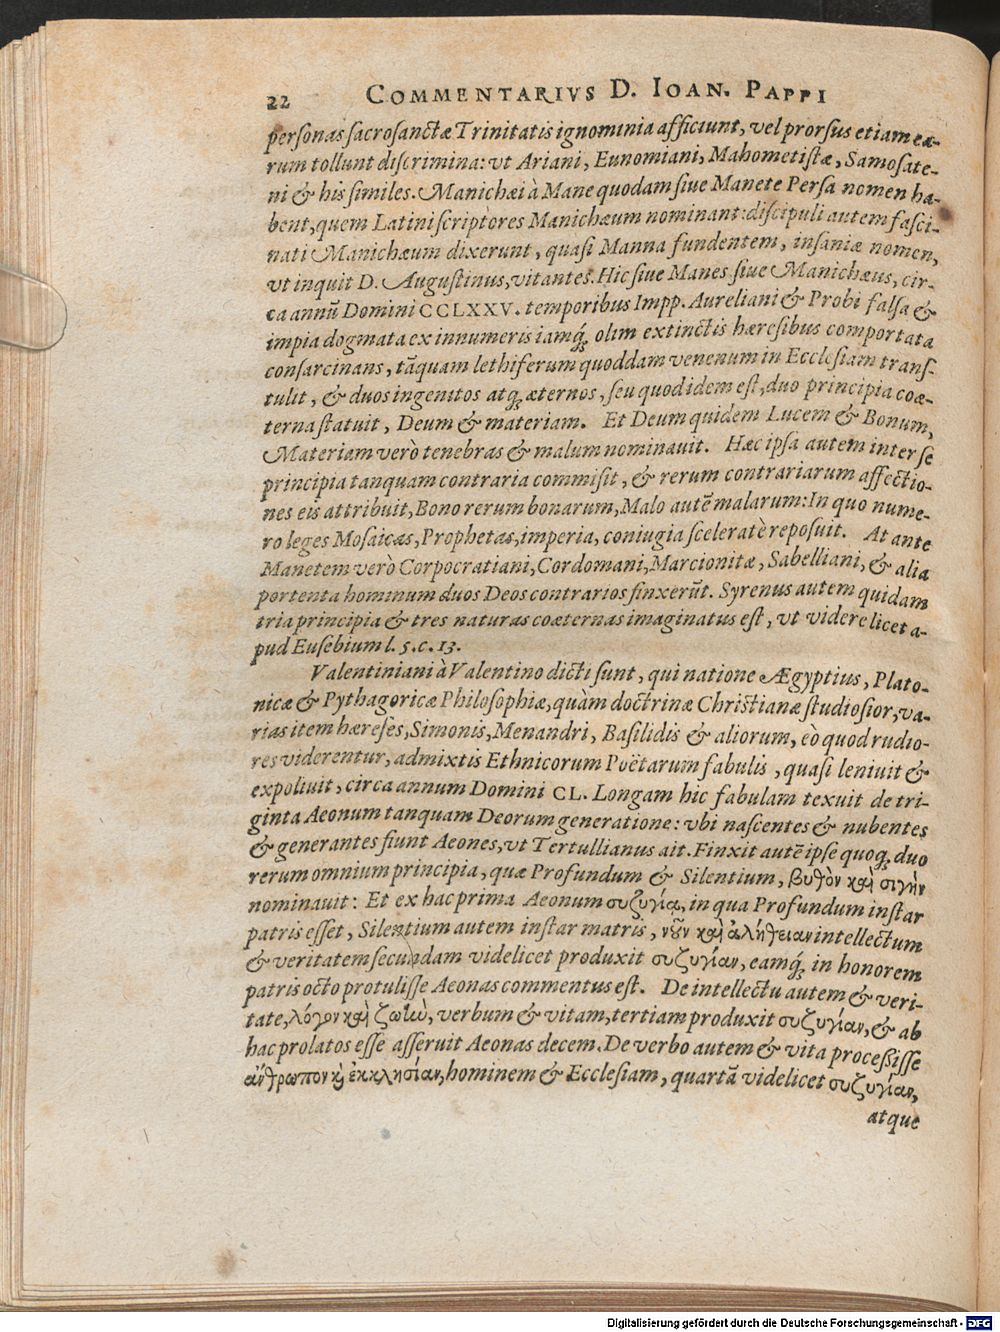 22 COMMENTARIVS D. IOAN. PAPPI
personas sacrosanctæ Trinitatis ignominia afficiunt, vel prorsus etiam ea-
rum tollunt discrimina: vt Ariani, Eunomiani, Mahometistæ, Samosate-
ni & his similes. Manichæi à Mane quodam siue Manete Persa nomen ha-
bent, quem Latini scriptores Manichæum nominant: discipuli autem fasci-
nati Manichæum dixerunt, quasi Manna fundentem, insaniæ nomen,
vt inquit D. Augustinus, vitantes. Hic siue Manes siue Manichæus, cir-
ca annũ Domini CCLXXV. temporibus Impp. Aureliani & Probi falsa &
impia dogmata ex innumeris iamq́; olim extinctis hæresibus comportata
consarcinans, tãquam lethiferum quoddam venenum in Ecclesiam trans-
tulit, & duos ingenitos atq; æternos, seu quod idem est, duo principia coæ-
terna statuit, Deum & materiam. Et Deum quidem Lucem & Bonum,
Materiam verò tenebras & malum nominauit. Hæc ipsa autem inter se
principia tanquam contraria commisit, & rerum contrariarum affectio-
nes eis attribuit, Bono rerum bonarum, Malo autẽ malarum: In quo nume-
ro leges Mosaicas, Prophetas, imperia, coniugia sceleratè reposuit. At ante
Manetem verò Corpocratiani, Cordomani, Marcionitæ, Sabelliani, & alia
portenta hominum duos Deos contrarios finxerũt. Syrenus autem quidam
tria principia & tres naturas coæternas imaginatus est, vt videre licet a-
pud Eusebium l. 5. c. 13.
Valentiniani à Valentino dicti sunt, qui natione Ægyptius, Plato-
nicæ & Pythagoricæ Philosophiæ, quàm doctrinæ Christianæ studiosior, va-
rias item hæreses, Simonis, Menandri, Basilidis & aliorum, eo quod rudio-
res viderentur, admixtis Ethnicorum Poëtarum fabulis, quasi leniuit &
expoliuit, circa annum Domini CL. Longam hic fabulam texuit de tri-
ginta Aeonum tanquam Deorum generatione: vbi nascentes & nubentes
& generantes fiunt Aeones, vt Tertullianus ait. Finxit autẽ ipse quoq; duo
rerum omnium principia, quæ Profundum & Silentium, βυθὸν καὶ σιγὴν
nominauit: Et ex hac prima Aeonum συζυγία, in qua Profundum instar
patris esset, Silentium autem instar matris, νοῦν καὶ ἀλήθειαν intellectum
& veritatem secundam videlicet produxit συζυγίαν, eamq́; in honorem
patris octo protulisse Aeonas commentus est. De intellectu autem & veri-
tate, λόγον καὶ ζωὴν, verbum & vitam, tertiam produxit συζυγίαν, & ab
hac prolatos esse asseruit Aeonas decem. De verbo autem & vita processisse
ἄνθρωπον κὶ ἐκκλησίαν, hominem & Ecclesiam, quartã videlicet συζυγίαν,
atque
Digitalisierung gefördert durch die Deutsche Forschungsgemeinschaft - DFG